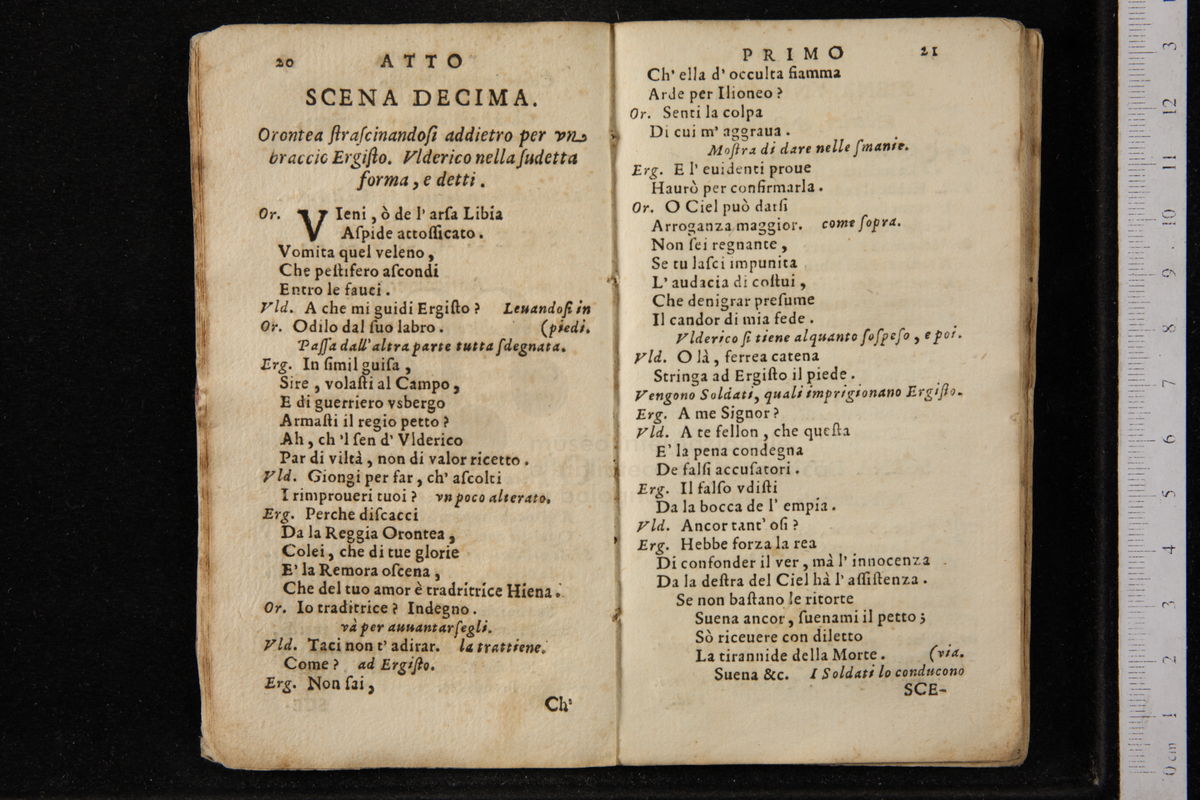 20 ATTO
SCENA DECIMA.
Orontea ſtraſcinandoſi addietro per vn
braccio Ergiſto. Vlderico nella ſudetta
forma, e detti.
Or. VIeni, ò de l' arſa Libia
Aſpide attoſſicato.
Vomita quel veleno,
Che peſtifero aſcondi
Entro le fauci.
Vld. A che mi guidi Ergiſto? Leuandoſi in
Or. Odilo dal ſuo labro. (piedi.
Paſſa dall'altra parte tutta ſdegnata.
Erg. In ſimil guiſa,
Sire, volaſti al Campo,
E di guerriero vsbergo
Armaſti il regio petto?
Ah, ch 'l ſen d' Vlderico
Par di viltà, non di valor ricetto.
Vld. Giongi per far, ch' aſcolti
I rimproueri tuoi? vn poco alterato.
Erg. Perche diſcacci
Da la Reggia Orontea,
Colei, che di tue glorie
E' la Remora oſcena,
Che del tuo amor è tradritrice Hiena.
Or. Io traditrice? Indegno.
và per auuantarſegli.
Vld. Taci non t' adirar. la trattiene.
Come? ad Ergiſto.
Erg. Non ſai,
Ch'
PRIMO 21
Ch' ella d' occulta fiamma
Arde per Ilioneo?
Or. Senti la colpa
Di cui m' aggraua.
Moſtra di dare nelle ſmanie.
Erg. E l' euidenti proue
Haurò per confirmarla.
Or. O Ciel può darſi
Arroganza maggior. come ſopra.
Non ſei regnante,
Se tu laſci impunita
L' audacia di coſtui,
Che denigrar preſume
Il candor di mia fede.
Vlderico ſi tiene alquanto ſoſpeſo, e poi.
Vld. O là, ferrea catena
Stringa ad Ergiſto il piede.
Vengono Soldati, quali imprigionano Ergiſto.
Erg. A me Signor?
Vld. A te fellon, che queſta
E' la pena condegna
De falſi accuſatori.
Erg. Il falſo vdiſti
Da la bocca de l' empia.
Vld. Ancor tant' oſi?
Erg. Hebbe forza la rea
Di confonder il ver, mà l' innocenza
Da la deſtra del Ciel hà l' aſſiſtenza.
Se non baſtano le ritorte
Suena ancor, ſuenami il petto;
Sò riceuere con diletto
La tirannide della Morte. (via.
Suena &c. I Soldati lo conducono
SCE-